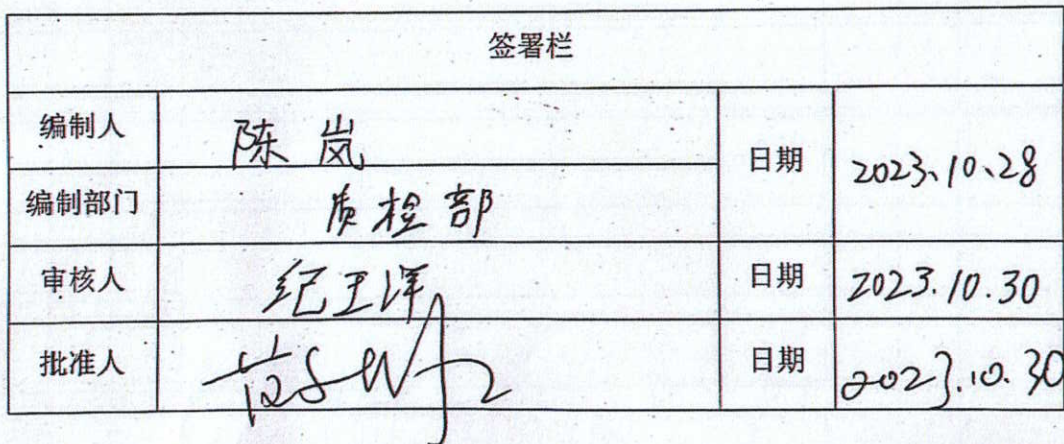 签署栏
编制人 陈岚 日期 2023、10、28
编制部门 质检部
审核人 纪玉洋 日期 2023.10.30
批准人 日期 2023.10.30